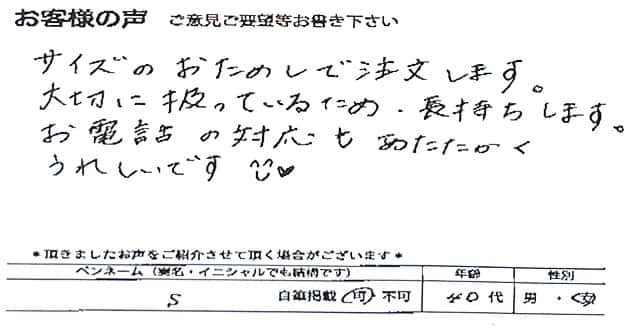 お客様の声 ご意見ご要望等お書き下さい
サイズのおためしで注文します。
大切に扱っているため、長持ちします。
お電話の対応もあたたかく
うれしいです
*頂きましたお声をご紹介させて頂く場合がございます*
ペンネーム（実名・イニシャルでも結構です） 年齢 性別
S 自鎮掲載 可 不可 40代 男・女